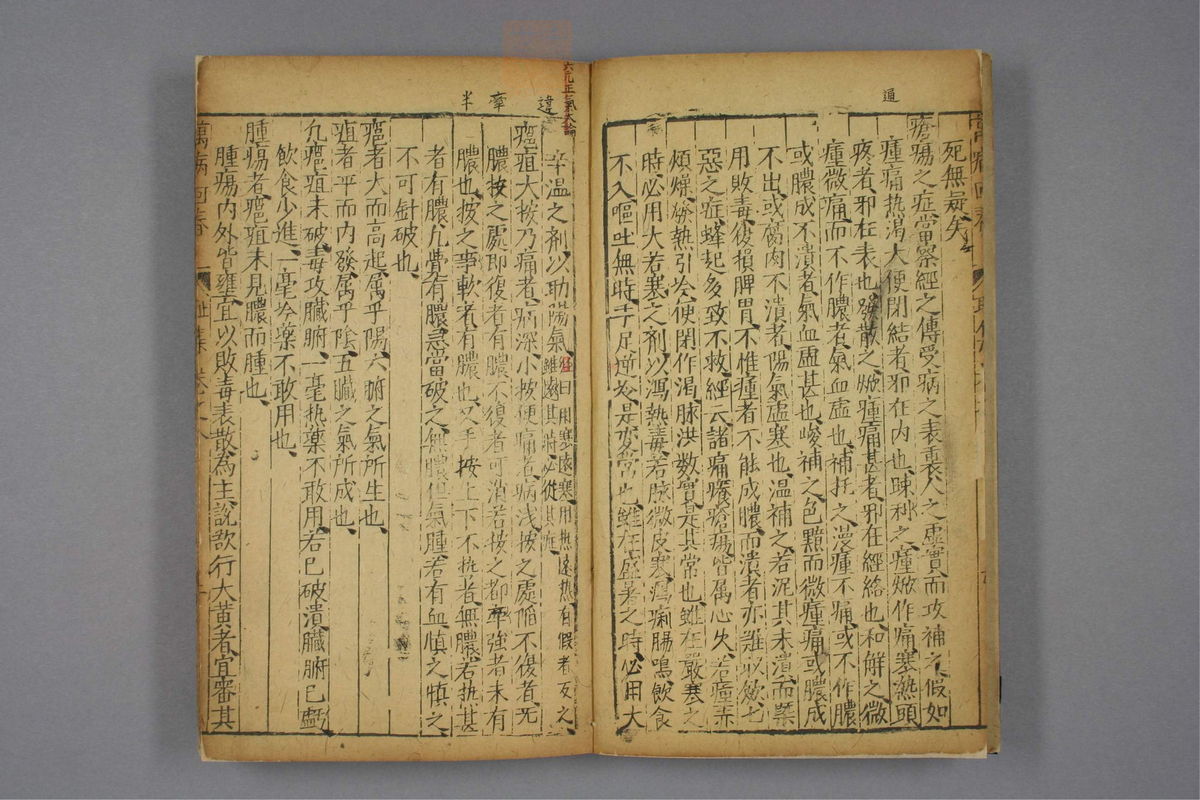 通
死無疑矣
瘡瘍之症當察經之傳受病之表裏人之虛實而攻補之假如
腫痛熱渴大便閉結者邪在內也疎利之腫焮作痛寒熱頭
疼者邪在表也發散之焮腫痛甚者邪在經絡也和解之微
腫微痛而不作膿者氣血虛也補托之漫腫不痛或不作膿
或膿成不潰者氣血虛甚也峻補之色黯而微腫痛或膿成
不出或腐肉不潰者陽氣虛寒也溫補之若泥其未潰而槩
用敗毒復損脾胃不惟腫者不能成膿而潰者亦難收斂七
惡之症蜂起多致不救經云諸痛癢瘡瘍皆属心火若腫赤
煩燥發熱引冷便閉作渴脉洪數實是其常也雖在嚴寒之
時必用大苦寒之劑以瀉熱毒若脉微皮寒瀉痢腸鳴飲食
不入嘔吐無時手足逆冷是变常也雖在盛暑之時必用大
六元正氣大論
違
牽
半
辛溫之劑以助陽氣
經曰用寒遠寒用热遠热有假者反之
雖違其時必從其症
瘡疽大按乃痛者病深小按便痛者病浅按之處陷不復者无
膿按之處即復者有膿不復者可消若按之都牽強者未有
膿也按之半軟者有膿也又手按上下不热者無膿若热甚
者有膿凢覺有膿急當破之無膿但氣腫若有血慎之慎之
不可針破也
瘡者大而高起属乎陽六腑之氣所生也
疽者平而內發属乎陰五臟之氣所成也
凢瘡疽未破毒攻臟腑一毫热藥不敢用若已破潰臟腑已虧
飲食少進一毫冷藥不敢用也
腫瘍者瘡疽未見膿而腫也
腫瘍內外皆壅宜以敗毒表散為主說欲行大黃者宜審其
萬病回春